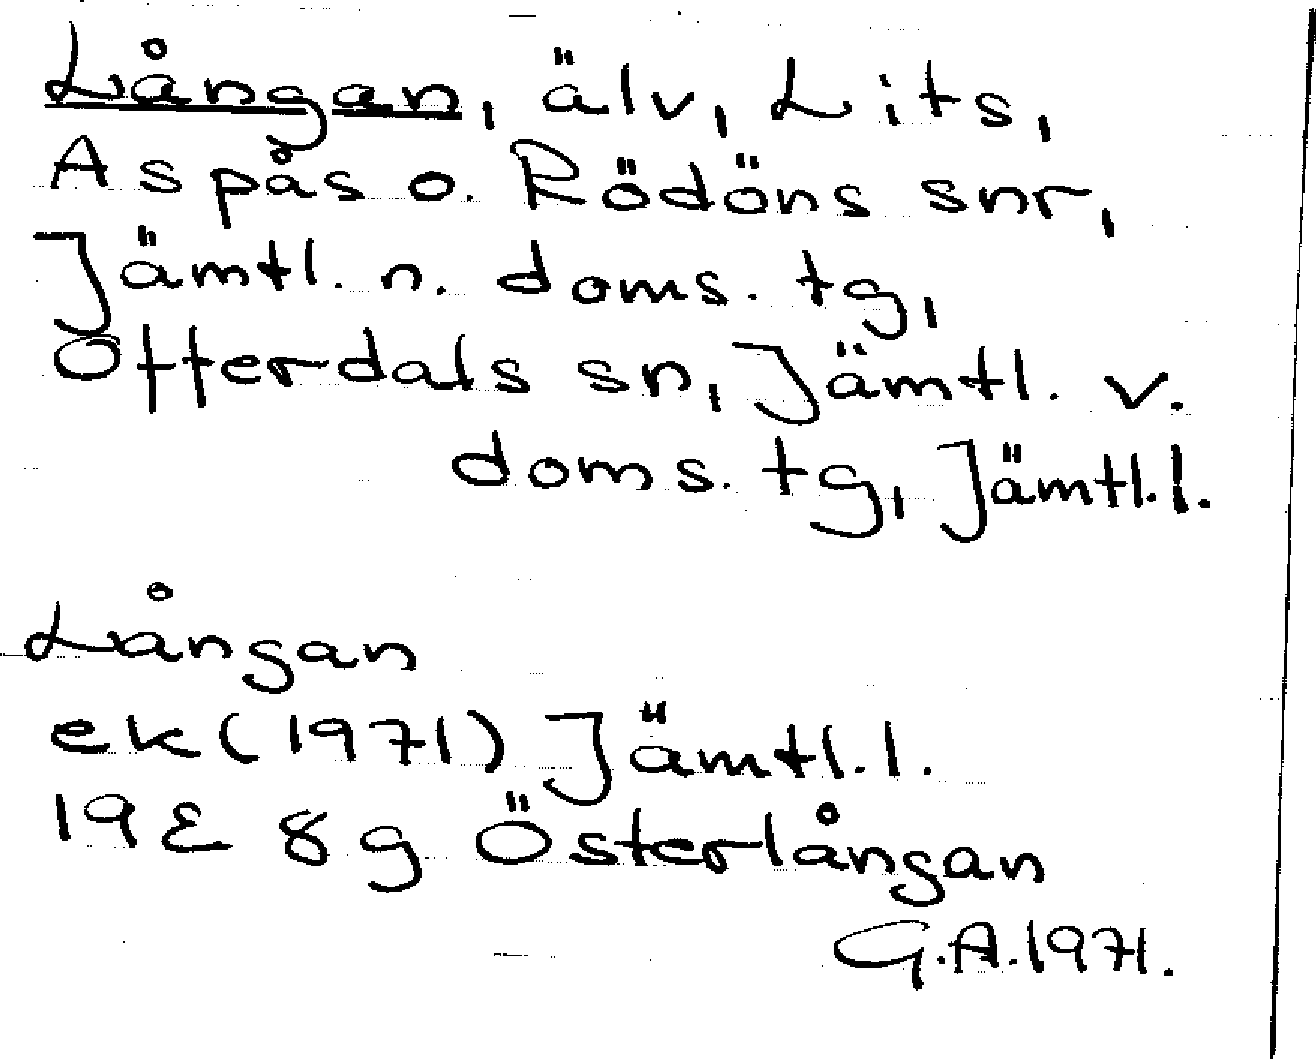 Långan, älv, Lits,
Aspås o. Rödöns snr,
Jämtl. n. doms. tg,
Offerdals sn, Jämtl. v.
doms. tg, Jämtl.l.
Långan
ek (1971) Jämtl.l.
19E 8g Österlångan
G.A.1971.